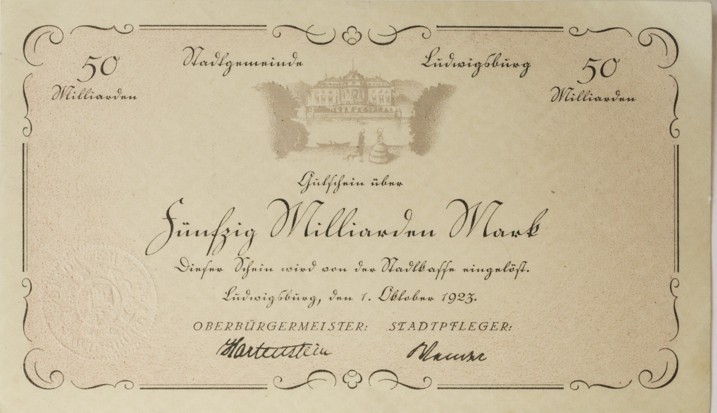 50 Milliarden
Stadtgemeinde Ludwigsburg
50 Milliarden
Gutschein über
Fünfzig Milliarden Mark
Dieser Schein wird von der Stadtkasse eingelöst.
Ludwigsburg, den 1. Oktober 1923.
OBERBÜRGERMEISTER: STADTPFLEGER:
Hartenstein